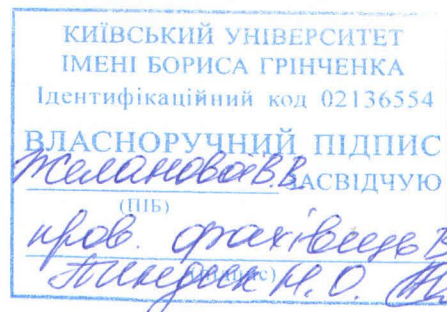 КИЇВСЬКИЙ УНІВЕРСИТЕТ
ІМЕНІ БОРИСА ГРІНЧЕНКА
Ідентифікаційний код 02136554
ВЛАСНОРУЧНИЙ ПІДПИС
Желанової В.В. ЗАСВІДЧУЮ
(ПІБ)
пров. фахівець В
Н.О.